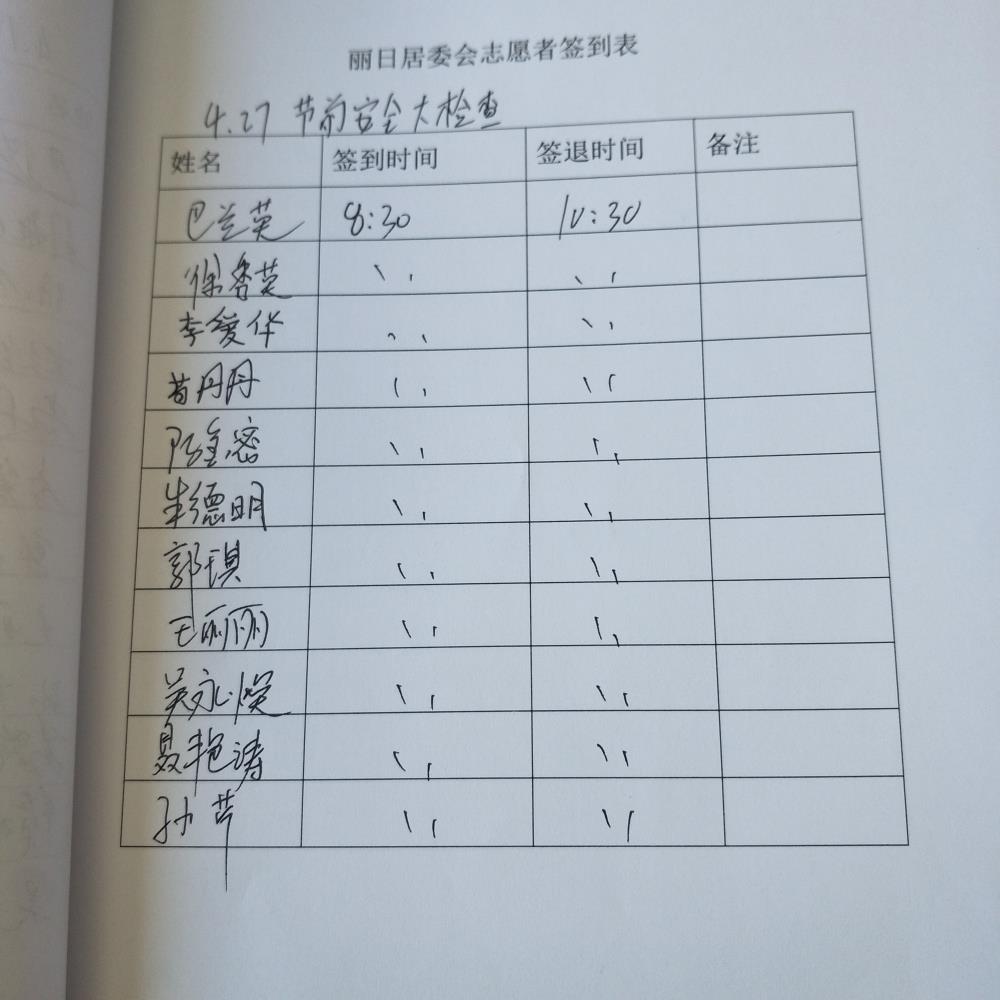 丽日居委会志愿者签到表
4.27 节前安全大检查
姓名 签到时间 签退时间 备注
巴兰英 8:30 10:30
徐香英 〃 〃
李爱华 〃 〃
丹丹 〃 〃
〃 〃
朱德明 〃 〃
郭琪 〃 〃
王丽丽 〃 〃
吴永煜 〃 〃
聂艳涛 〃 〃
孙芹 〃 〃